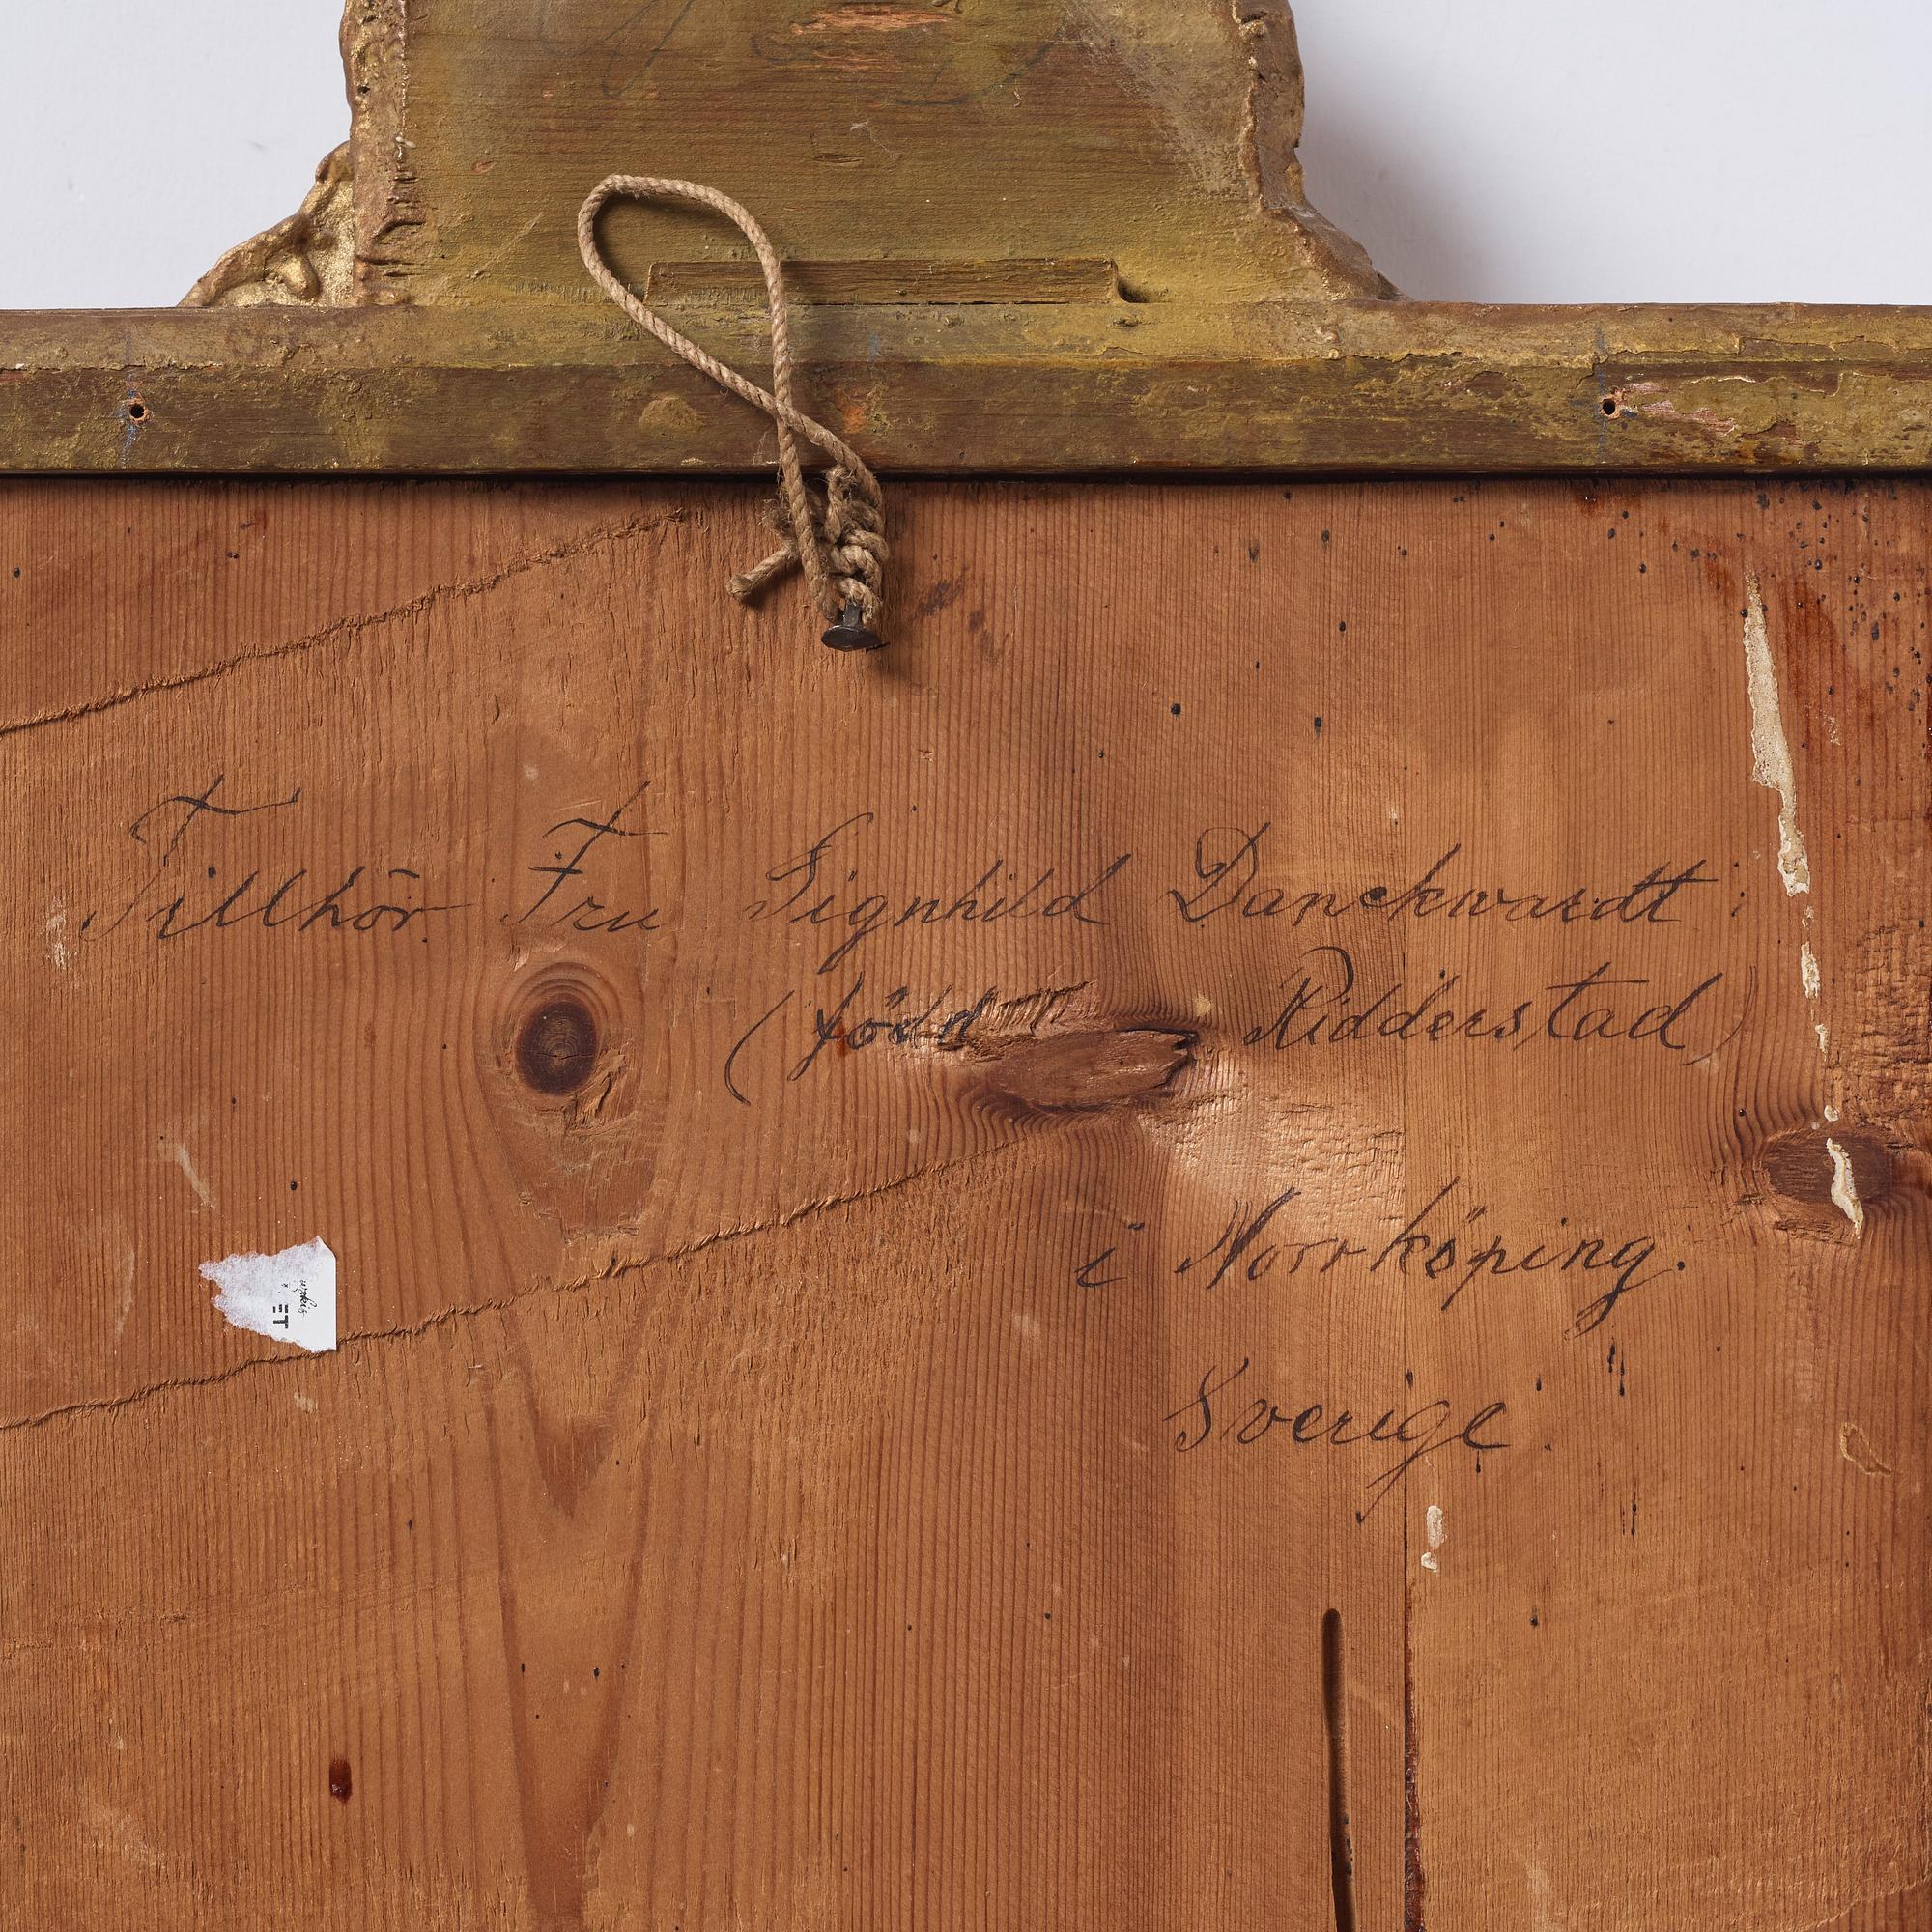 Tillhör Fru Signhild Danckwardt
(född Ridderstad)
i Norrköping.
Sverige.
ET